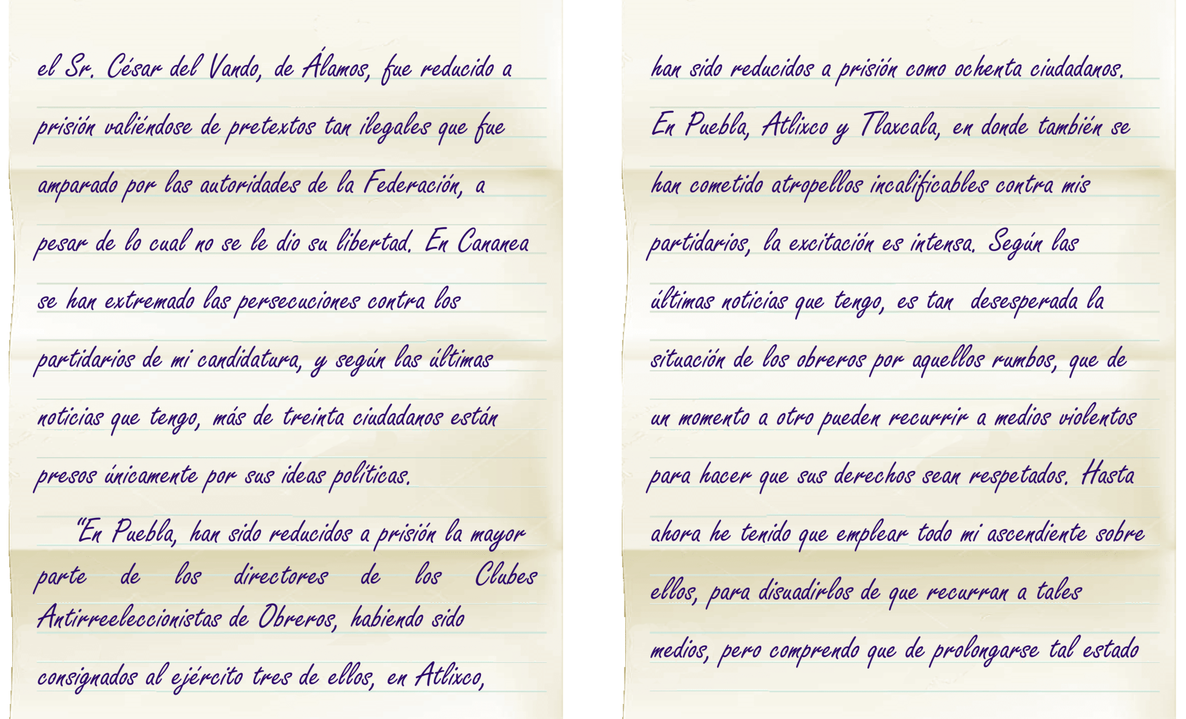 el Sr. César del Vando, de Álamos, fue reducido a
prisión valiéndose de pretextos tan ilegales que fue
amparado por las autoridades de la Federación, a
pesar de lo cual no se le dio su libertad. En Cananea
se han extremado las persecuciones contra los
partidarios de mi candidatura, y según las últimas
noticias que tengo, más de treinta ciudadanos están
presos únicamente por sus ideas políticas.
“En Puebla, han sido reducidos a prisión la mayor
parte de los directores de los Clubes
Antirreeleccionistas de Obreros, habiendo sido
consignados al ejército tres de ellos, en Atlixco,
han sido reducidos a prisión como ochenta ciudadanos.
En Puebla, Atlixco y Tlaxcala, en donde también se
han cometido atropellos incalificables contra mis
partidarios, la excitación es intensa. Según las
últimas noticias que tengo, es tan desesperada la
situación de los obreros por aquellos rumbos, que de
un momento a otro pueden recurrir a medios violentos
para hacer que sus derechos sean respetados. Hasta
ahora he tenido que emplear todo mi ascendiente sobre
ellos, para disuadirlos de que recurran a tales
medios, pero comprendo que de prolongarse tal estado